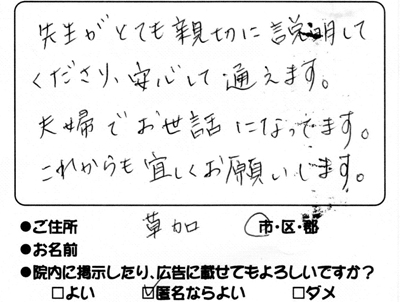 先生がとても親切に説明して
くださり、安心して通えます。
夫婦でお世話になってます。
これからも宜しくお願いします。
●ご住所 草加 市・区・郡
●お名前
●院内に掲示したり、広告に載せてもよろしいですか?
□よい ☑匿名ならよい □ダメ